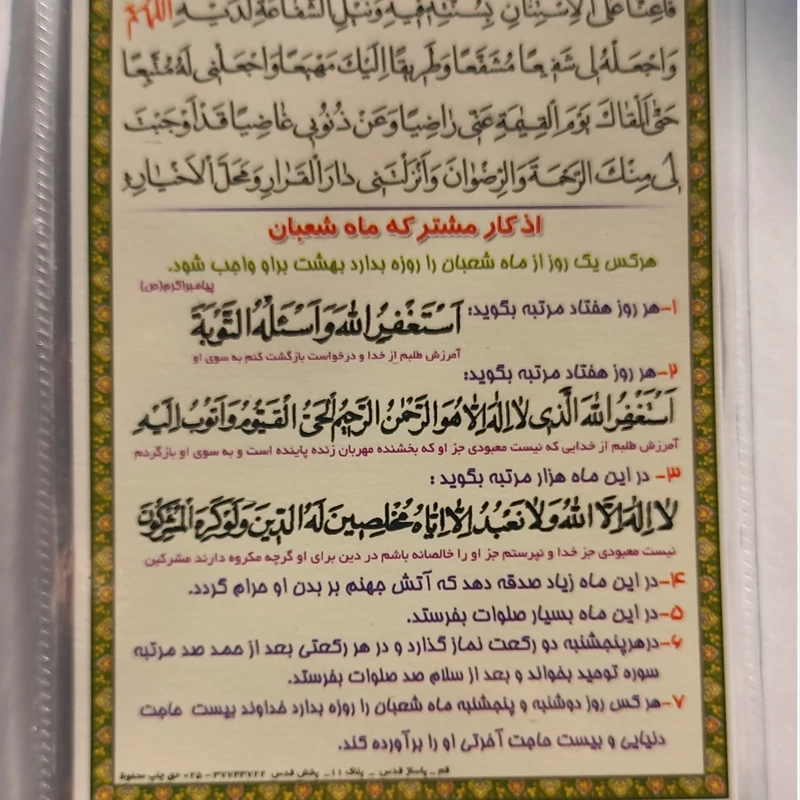 فَأَعِنَّا عَلَى الْاِسْتِنَانِ بِسُنَّتِهِ فِيهِ وَنَيْلِ الشَّفَاعَةِ لَدَيْهِ اَللّٰهُمَّ
وَاجْعَلْهُ لِى شَفِيعًا مُشَفَّعًا وَطَرِيقًا اِلَيْكَ مَهْيَعًا وَاجْعَلْنِى لَهُ مُتَّبِعًا
حَتّٰى اَلْقَاكَ يَوْمَ الْقِيٰمَةِ عَنِّى رَاضِيًا وَعَنْ ذُنُوبِى غَاضِيًا قَدْ اَوْجَبْتَ
لِى مِنْكَ الرَّحْمَةَ وَالرِّضْوَانَ وَاَنْزَلْتَنِى دَارَ الْقَرَارِ وَمَحَلَّ الْاَخْيَارِ
اذکار مشترکه ماه شعبان
هرکس یک روز از ماه شعبان را روزه بدارد بهشت براو واجب شود.
پیامبراکرم(ص)
۱-هر روز هفتاد مرتبه بگوید: اَسْتَغْفِرُ اللهَ وَاَسْئَلُهُ التَّوْبَةَ
آمرزش طلبم از خدا و درخواست بازگشت کنم به سوی او
۲-هر روز هفتاد مرتبه بگوید:
اَسْتَغْفِرُ اللهَ الَّذِى لَا اِلٰهَ اِلَّا هُوَ الرَّحْمٰنُ الرَّحِيمُ الْحَىُّ الْقَيُّومُ وَاَتُوبُ اِلَيْهِ
آمرزش طلبم از خدایی که نیست معبودی جز او که بخشنده مهربان زنده پاینده است و به سوی او بازگردم
۳- در این ماه هزار مرتبه بگوید :
لَا اِلٰهَ اِلَّا اللهُ وَلَا نَعْبُدُ اِلَّا اِيَّاهُ مُخْلِصِينَ لَهُ الدِّينَ وَلَوْ كَرِهَ الْمُشْرِكُونَ
نیست معبودی جز خدا و نپرستم جز او را خالصانه باشم در دین برای او گرچه مکروه دارند مشرکین
۴-در این ماه زیاد صدقه دهد که آتش جهنم بر بدن او حرام گردد.
۵-در این ماه بسیار صلوات بفرستد.
۶-درهرپنجشنبه دو رکعت نماز گذارد و در هر رکعتی بعد از حمد صد مرتبه
سوره توحید بخواند و بعد از سلام صد صلوات بفرستد.
۷-هر کس روز دوشنبه و پنجشنبه ماه شعبان را روزه بدارد خداوند بیست حاجت
دنیایی و بیست حاجت آخرتی او را برآورده کند.
قم _ پاساژ قدس _ پلاک ۱۱_ پخش قدس ۳۷۷۴۳۷۲۲ - ۰۲۵ حق چاپ محفوظ